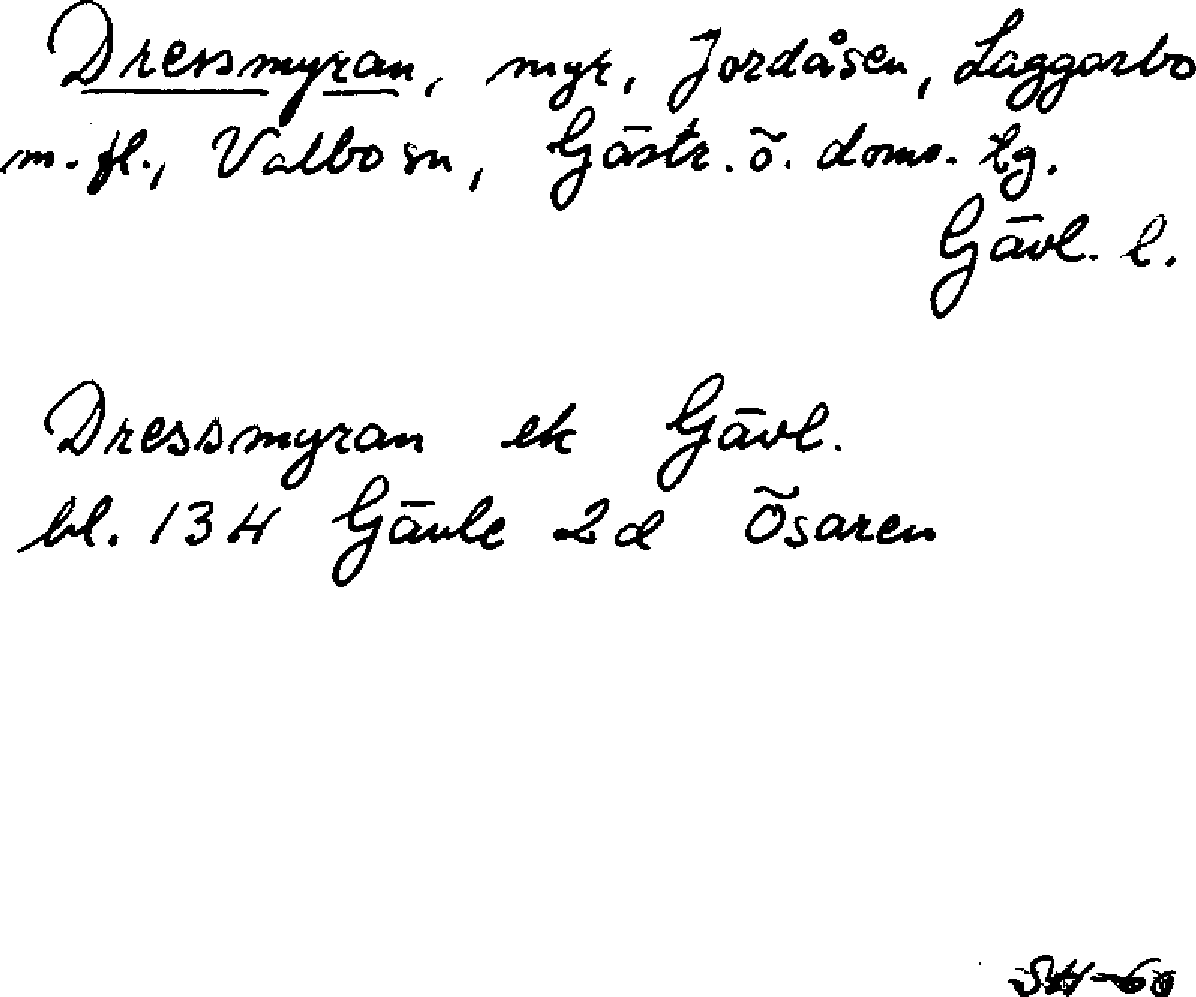 Dressmyran, myr, Jordåsen, Laggarbo
m. fl., Valbo sn, Gästr. ö. doms. tg.
Gävl. l.
Dressmyran ek Gävl.
bl. 13H Gävle 2d Ösaren
SH-60